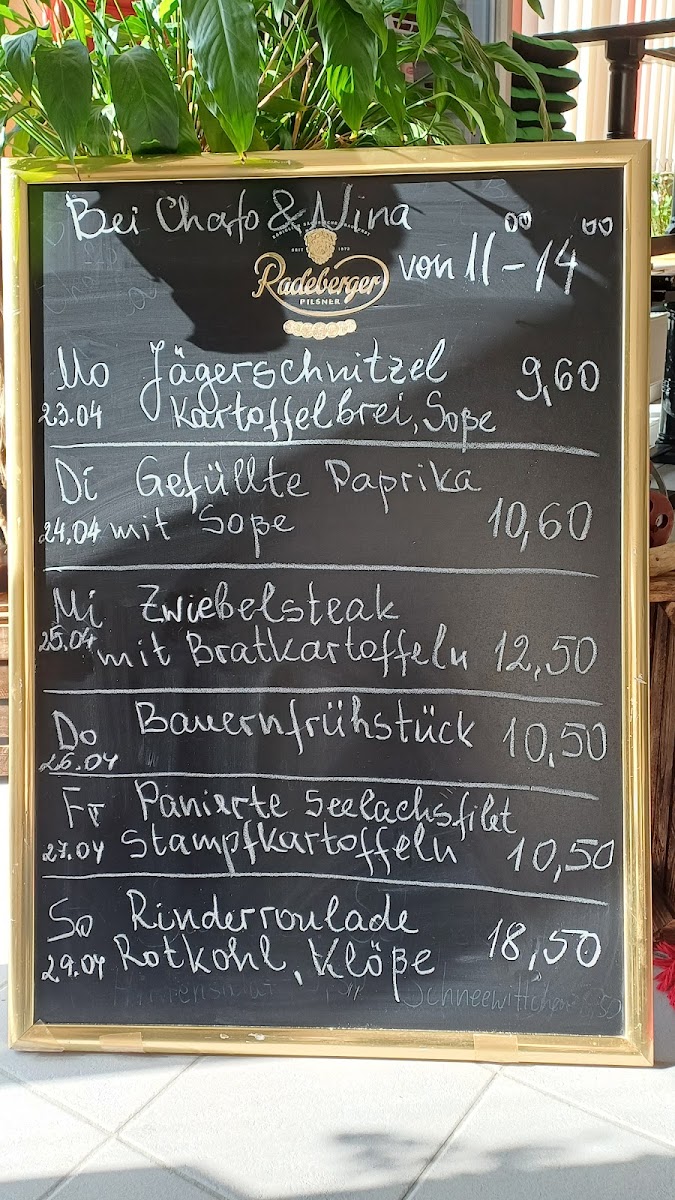 Bei Chafo & Nina
SEIT 1872
Radeberger
PILSNER
von 11⁰⁰ - 14⁰⁰
Mo Jägerschnitzel 9,60
23.04 Kartoffelbrei, Soße
Di Gefüllte Paprika
24.04 mit Soße 10,60
Mi Zwiebelsteak
25.04 mit Bratkartoffeln 12,50
Do Bauernfrühstück 10,50
26.04
Fr Panierte Seelachsfilet
27.04 Stampfkartoffeln 10,50
So Rinderroulade 18,50
29.04 Rotkohl, Klöße
Schneewittchen